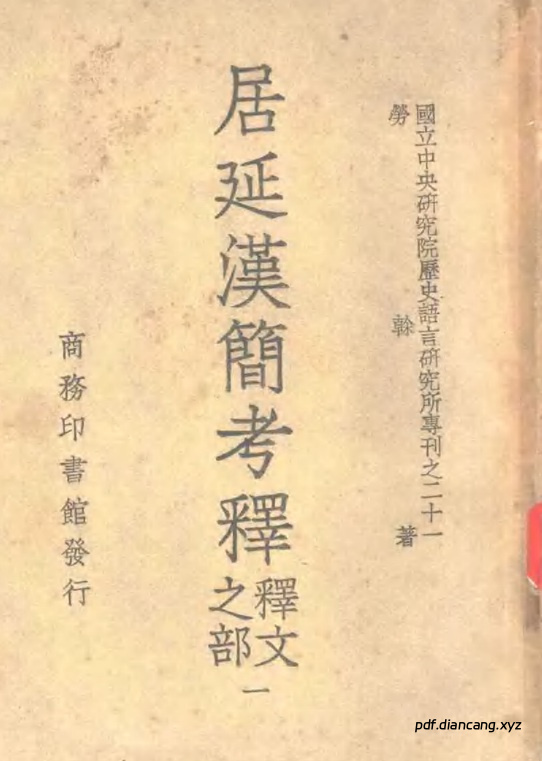 國立中央研究院歷史語言研究所專刊之二十一
勞榦著
居延漢簡考釋
釋文之部
一
商務印書館發行
pdf.diancang.xyz